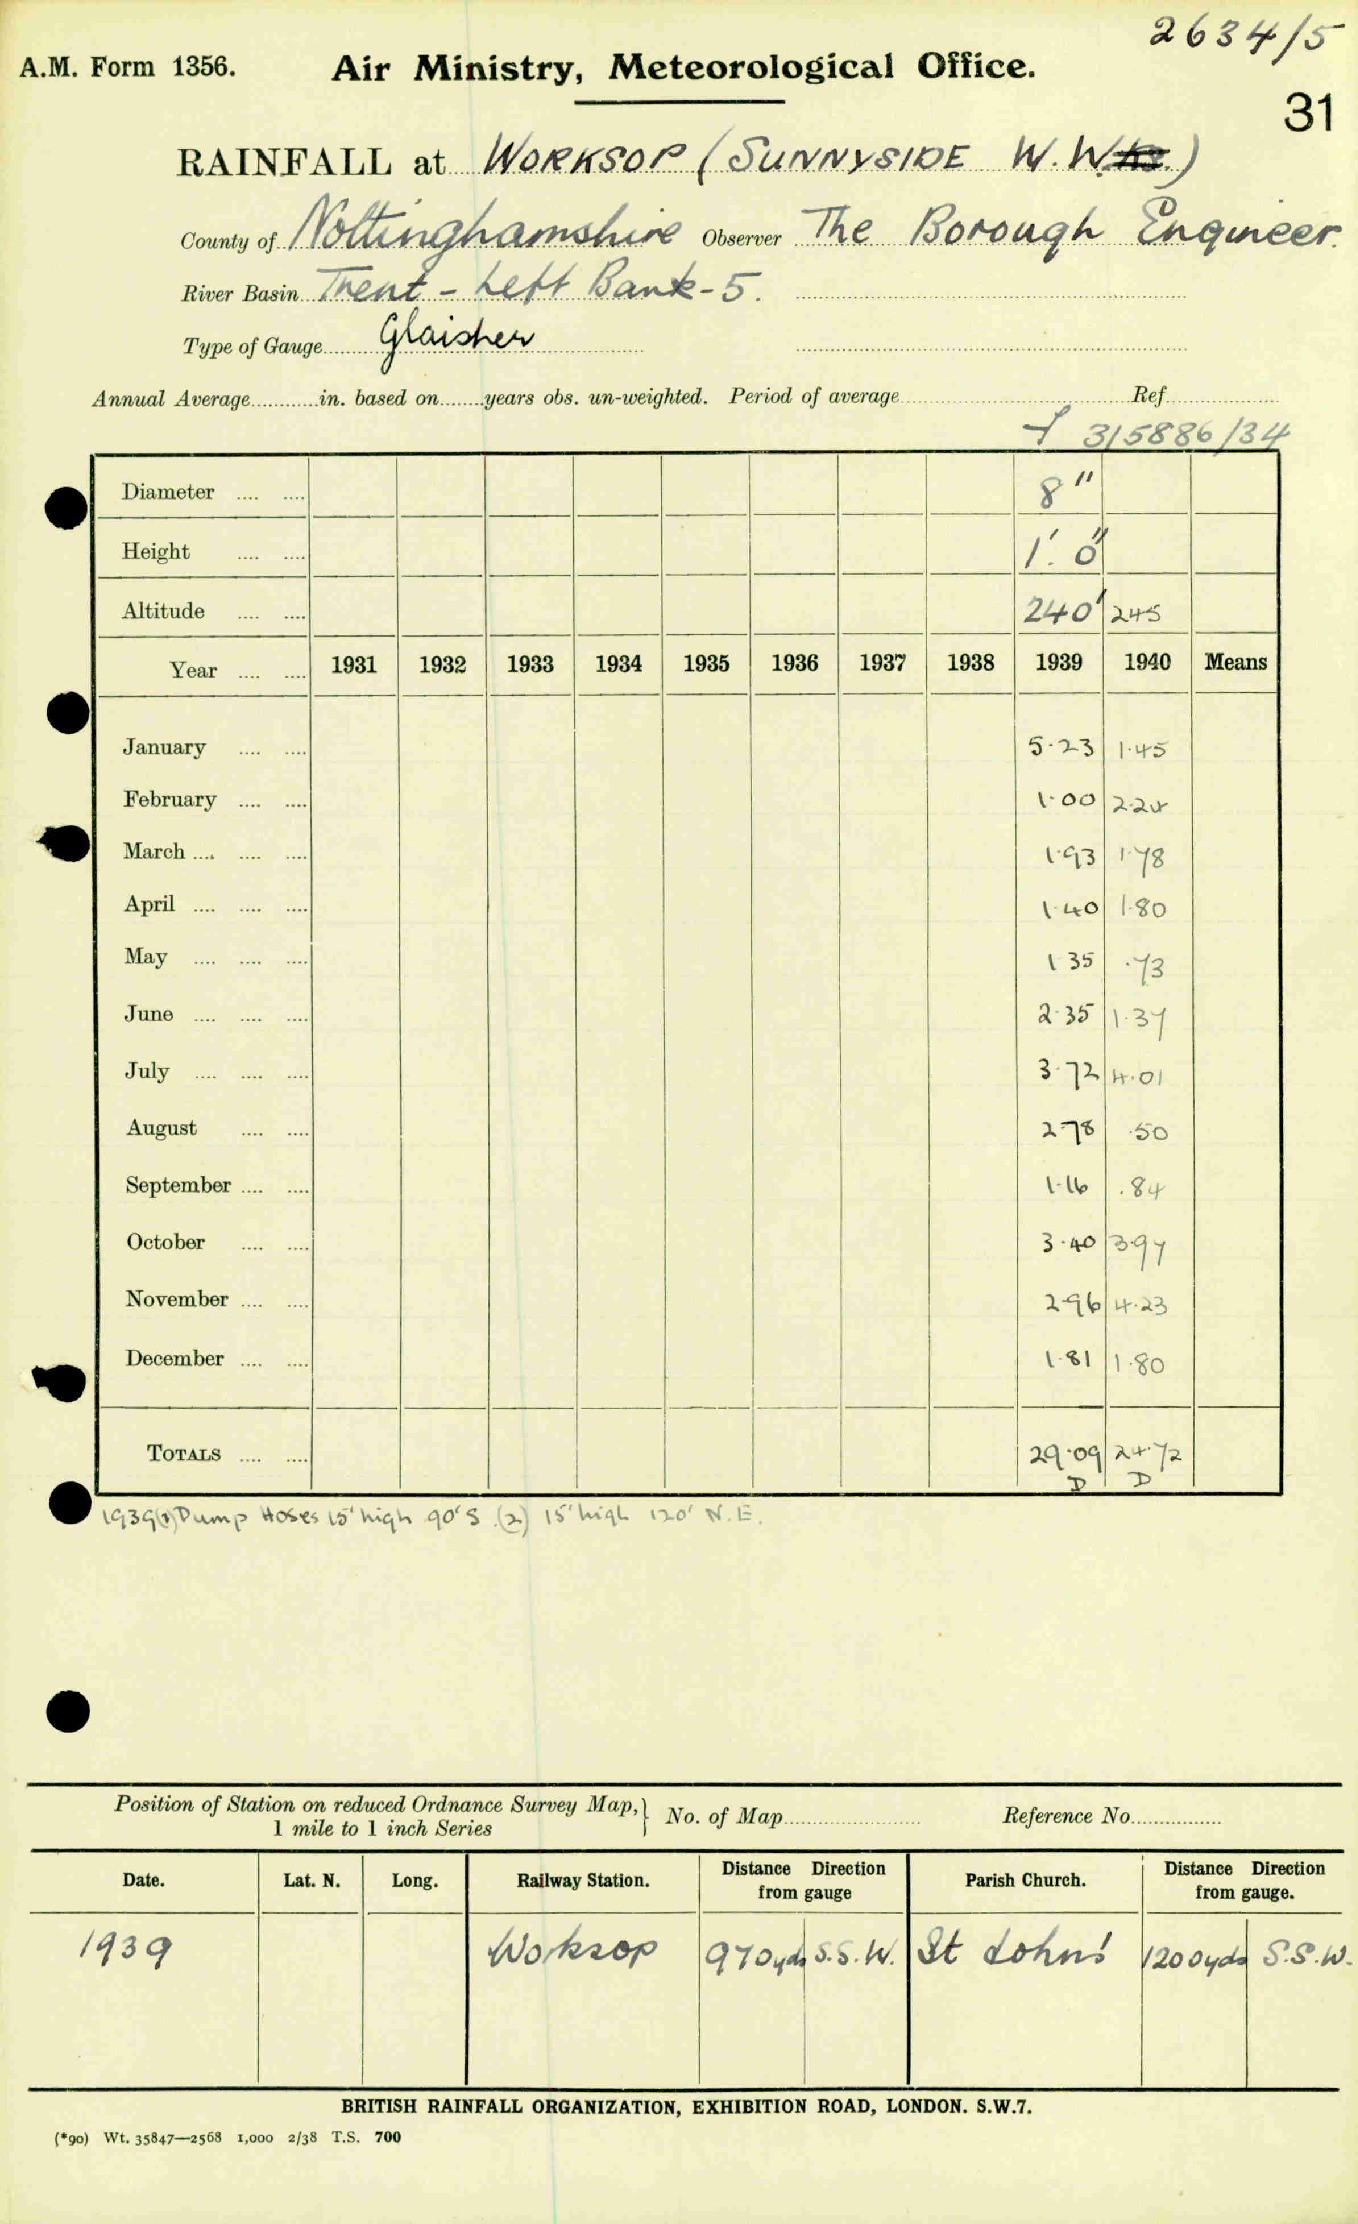 2634/5
A.M. Form 1356. Air Ministry, Meteorological Office.
31
RAINFALL at WORKSOP (SUNNYSIDE W.W.)
County of Nottinghamshire Observer The Borough Engineer.
River Basin Trent - Left Bank - 5.
Type of Gauge Glaisher
Annual Average............in. based on.......years obs. un-weighted. Period of average.......... Ref..........
315886/34
Diameter .... .... 8"
Height .... .... 1'. 0"
Altitude .... .... 240' 245
Year .... .... 1931 1932 1933 1934 1935 1936 1937 1938 1939 1940 Means
January .... .... 5.23 1.45
February .... .... 1.00 2.24
March .... .... .... 1.93 1.78
April .... .... .... 1.40 1.80
May .... .... .... 1 35 .73
June .... .... .... 2.35 1.37
July .... .... .... 3.72 4.01
August .... .... 2.78 .50
September .... .... 1.16 .84
October .... .... 3.40 3.97
November .... .... 2.96 4.23
December .... .... 1.81 1.80
TOTALS .... .... 29.09 24.72
D D
1939 (1) Pump Hoses 15' high 90' S. (2) 15' high 120' N.E.
Position of Station on reduced Ordnance Survey Map, } No. of Map.......... Reference No..........
1 mile to 1 inch Series
Date. Lat. N. Long. Railway Station. Distance Direction from gauge Parish Church. Distance Direction from gauge.
1939 Worksop 970 yds S.S.W. St Johns' 1200 yds S.S.W.
BRITISH RAINFALL ORGANIZATION, EXHIBITION ROAD, LONDON. S.W.7.
(*90) Wt. 35847—2568 1,000 2/38 T.S. 700